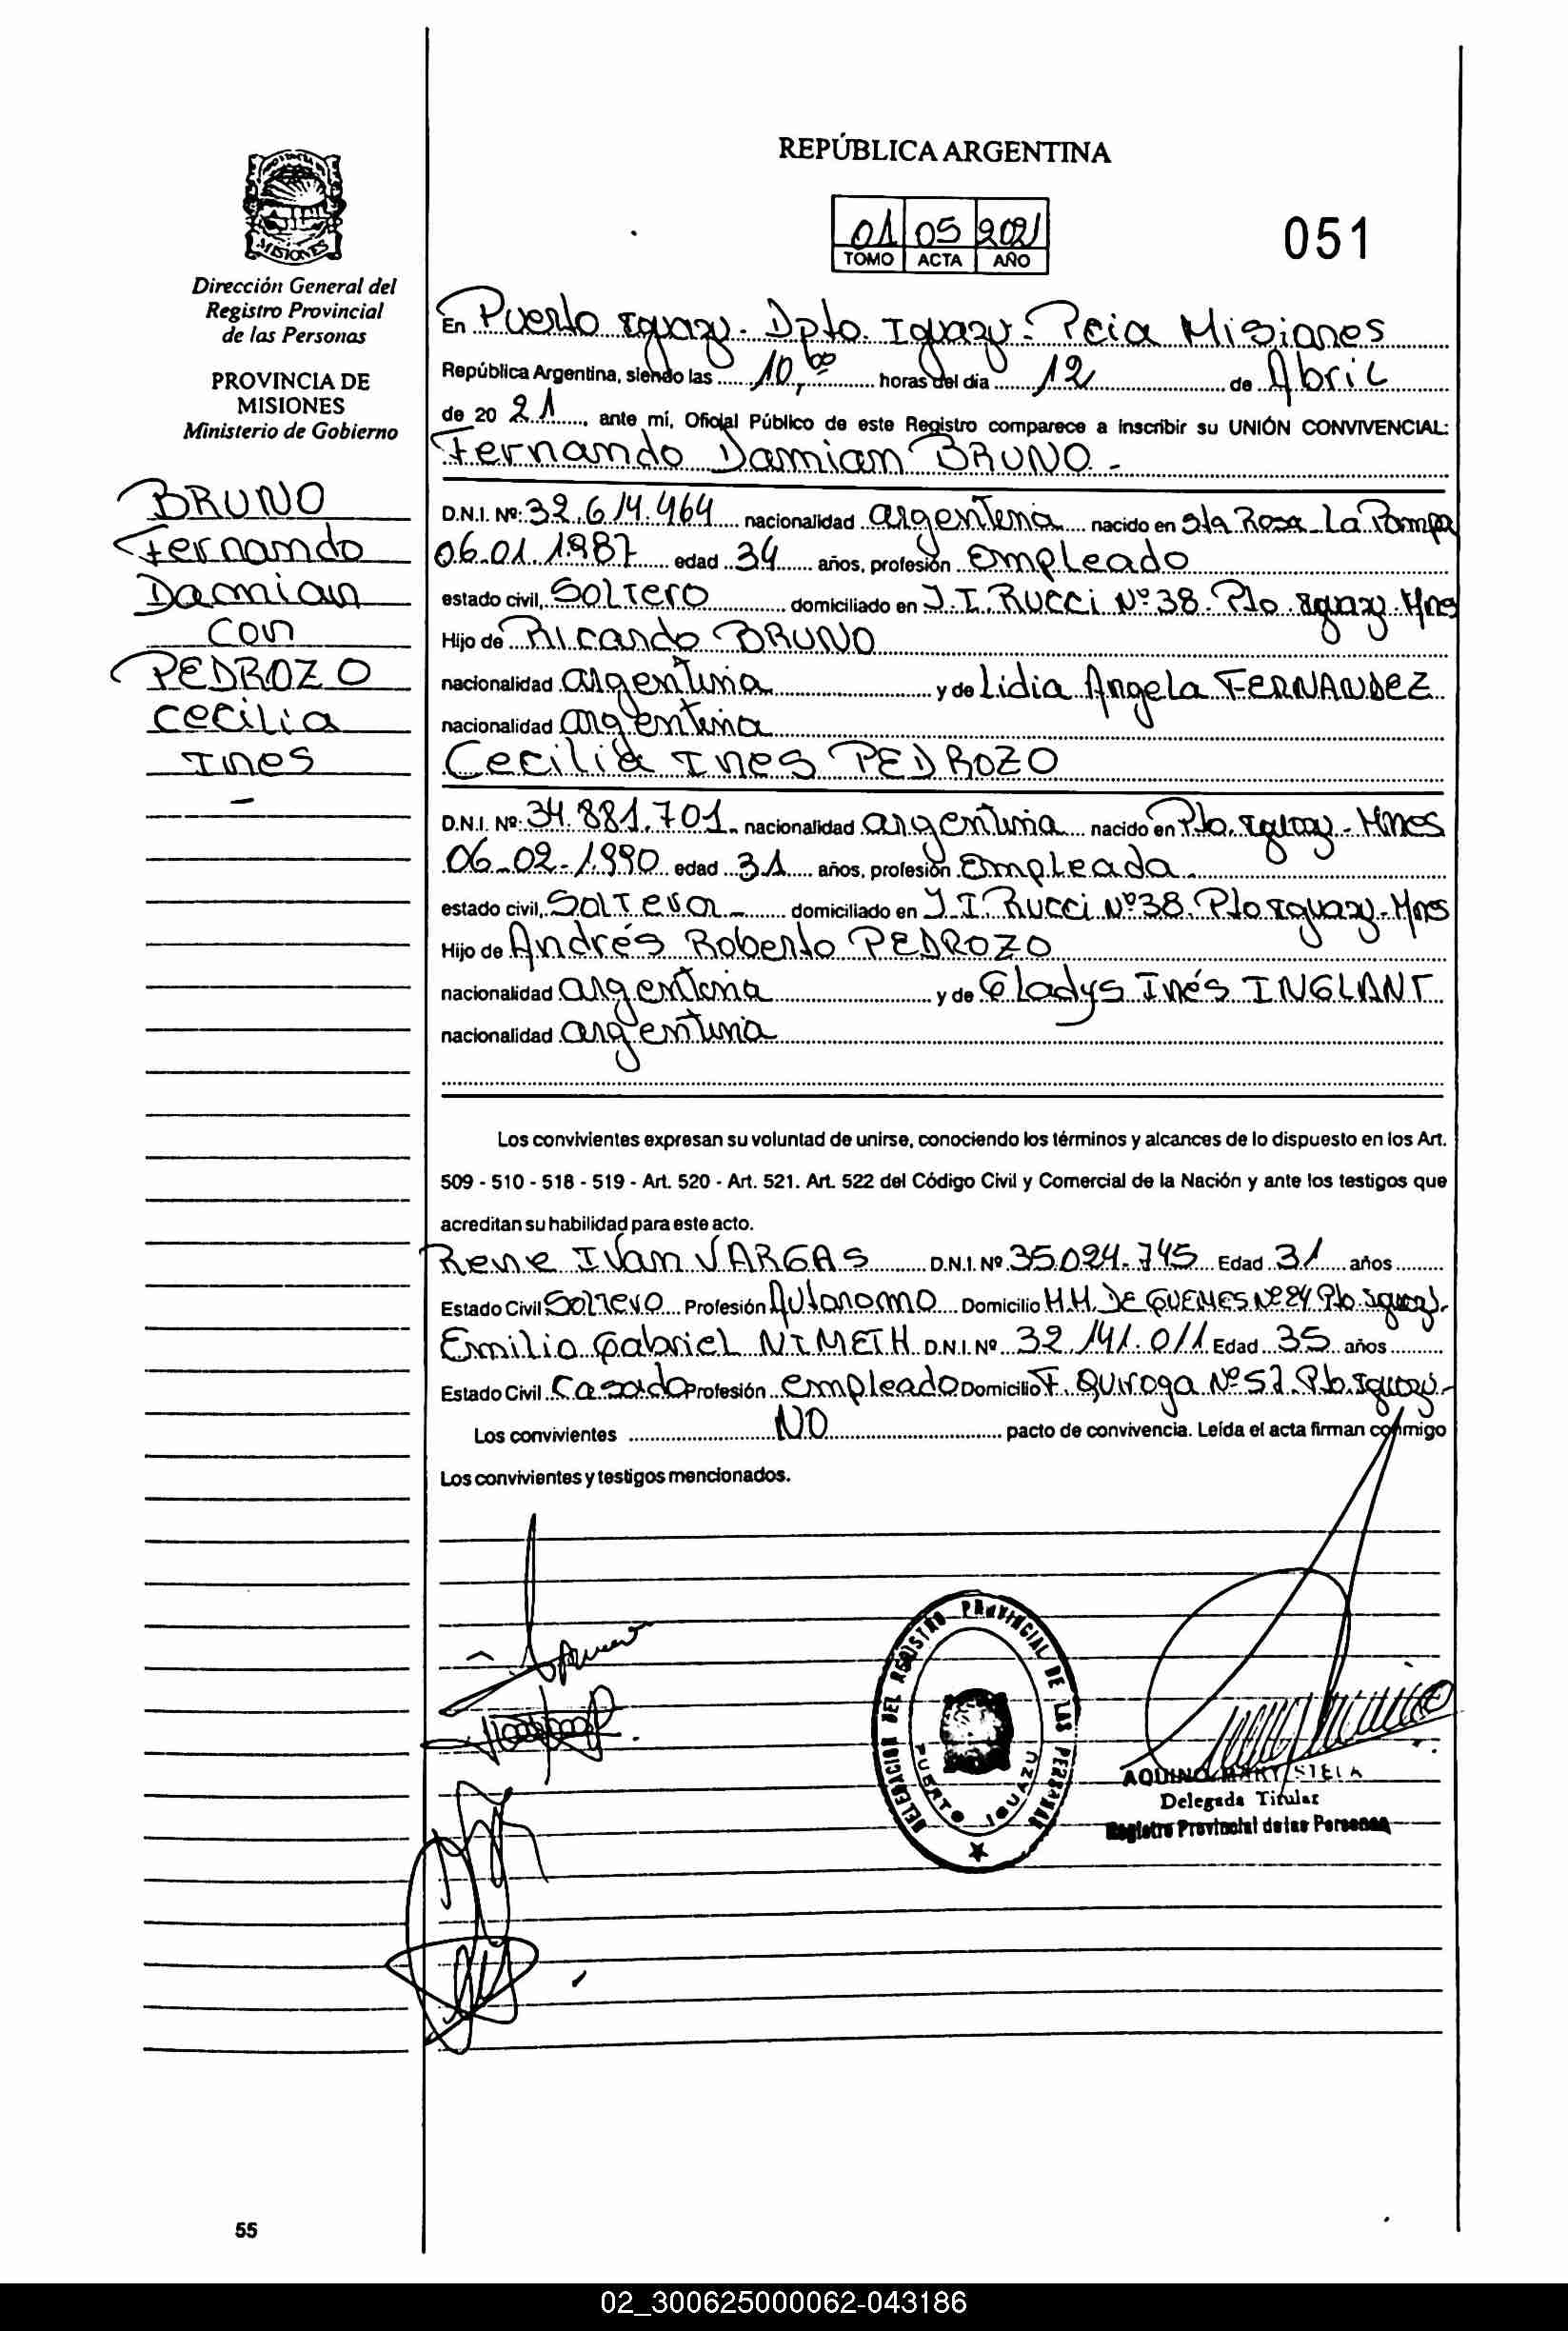 REPÚBLICA ARGENTINA
01 05 2021
TOMO ACTA AÑO
051
MISIONES
Dirección General del
Registro Provincial
de las Personas
PROVINCIA DE
MISIONES
Ministerio de Gobierno
BRUNO
Fernando
Damian
con
PEDROZO
Cecilia
Ines
-
En Puerto Iguazu - Dpto. Iguazu - Pcia Misiones
República Argentina, siendo las 10,00 horas del día 12 de Abril
de 20 21, ante mí, Oficial Público de este Registro comparece a inscribir su UNIÓN CONVIVENCIAL:
Fernando Damian BRUNO -
D.N.I. Nº: 32.614.464 nacionalidad argentina nacido en Sta Rosa La Pampa
06.01.1987 edad 34 años, profesión Empleado
estado civil, Soltero domiciliado en J.I. Rucci Nº 38. Pto Iguazu. Mnes
Hijo de Ricardo BRUNO
nacionalidad argentina y de Lidia Angela FERNANDEZ
nacionalidad argentina
Cecilia Ines PEDROZO
D.N.I. Nº: 34.881.701. nacionalidad argentina nacido en Pto. Iguazu - Mnes
06-02-1990 edad 31 años, profesión Empleada.
estado civil, Soltera - domiciliado en J.I. Rucci Nº38. Pto Iguazu - Mnes
Hijo de Andrés Roberto PEDROZO
nacionalidad argentina y de Gladys Inés INGLANT
nacionalidad argentina
Los convivientes expresan su voluntad de unirse, conociendo los términos y alcances de lo dispuesto en los Art.
509 - 510 - 518 - 519 - Art. 520 - Art. 521. Art. 522 del Código Civil y Comercial de la Nación y ante los testigos que
acreditan su habilidad para este acto.
Rene Ivan VARGAS D.N.I. Nº 35.024.745 Edad 31 años
Estado Civil Soltero Profesión Autonomo Domicilio M.M. DE GUEMES Nº 84 Pto. Iguazu.
Emilio Gabriel NIMETH D.N.I. Nº 32.141.011 Edad 35 años
Estado Civil Casado Profesión empleado Domicilio F. Quiroga Nº 52. Pto. Iguazu -
Los convivientes NO pacto de convivencia. Leída el acta firman conmigo
Los convivientes y testigos mencionados.
DELEGACION DEL REGISTRO PROVINCIAL DE LAS PERSONAS
PUERTO IGUAZU
AQUINO MARY STELA
Delegada Titular
Registro Provincial de las Personas
55
02_300625000062-043186